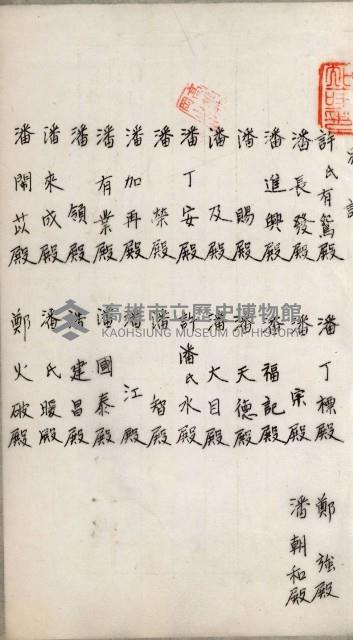 許氏有鴛殿
潘長發殿
潘進興殿
潘賜殿
潘及殿
潘丁安殿
潘榮殿
潘加再殿
潘有業殿
潘領殿
潘來成殿
潘開苡殿
潘丁標殿
潘宗殿
潘福記殿
潘天德殿
潘大目殿
許潘氏水殿
潘智殿
潘江殿
潘國泰殿
潘建昌殿
潘氏暖殿
鄭火破殿
鄭強殿
潘朝和殿
高雄市立歷史博物館
KAOHSIUNG MUSEUM OF HISTORY